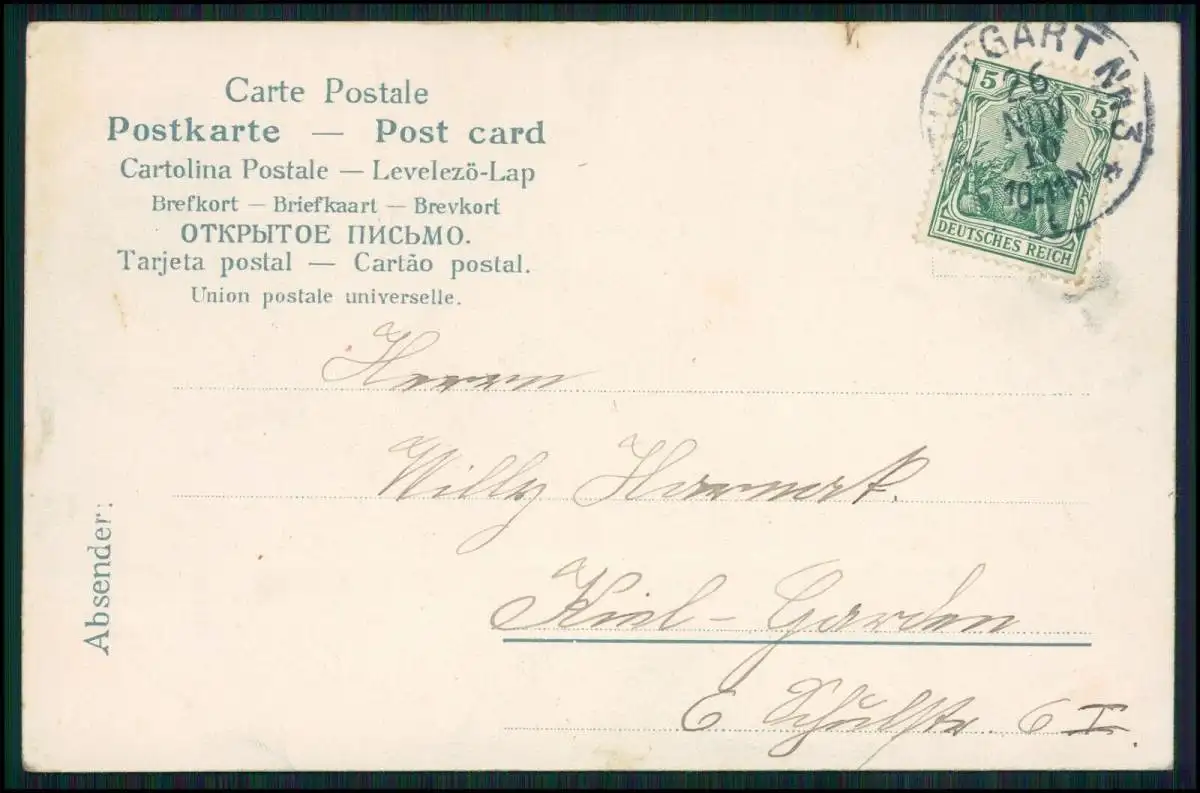 Carte Postale
Postkarte — Post card
Cartolina Postale — Levelező-Lap
Brefkort — Briefkaart — Brevkort
ОТКРЫТОЕ ПИСЬМО.
Tarjeta postal — Cartão postal.
Union postale universelle.
STUTTGART Nr. 3
26
NOV
10
10-11N
5 5
DEUTSCHES REICH
Absender:
Herrn
Willy
Kiel - Garden
E Schulstr. 6 I.